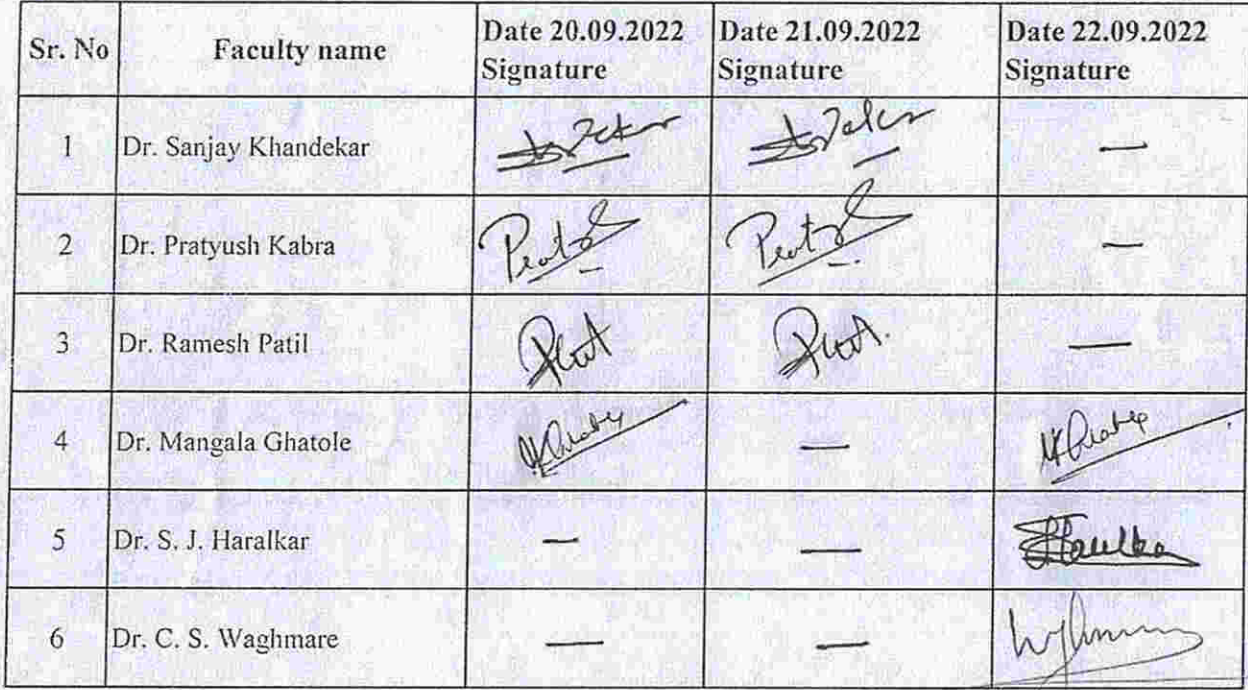 Sr. No Faculty name Date 20.09.2022 Signature Date 21.09.2022 Signature Date 22.09.2022 Signature
1 Dr. Sanjay Khandekar —
2 Dr. Pratyush Kabra —
3 Dr. Ramesh Patil —
4 Dr. Mangala Ghatole —
5 Dr. S. J. Haralkar — —
6 Dr. C. S. Waghmare — —